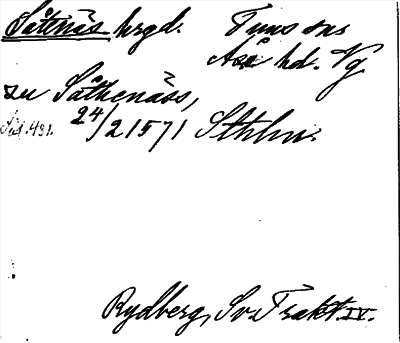 Såtenäs hrgd. Tuns sn
Åse hd. Vg
zu Såthenäss,
Sid. 481. 24/2 1571 Sthlm.
Rydberg, Sv. Trakt. IV.